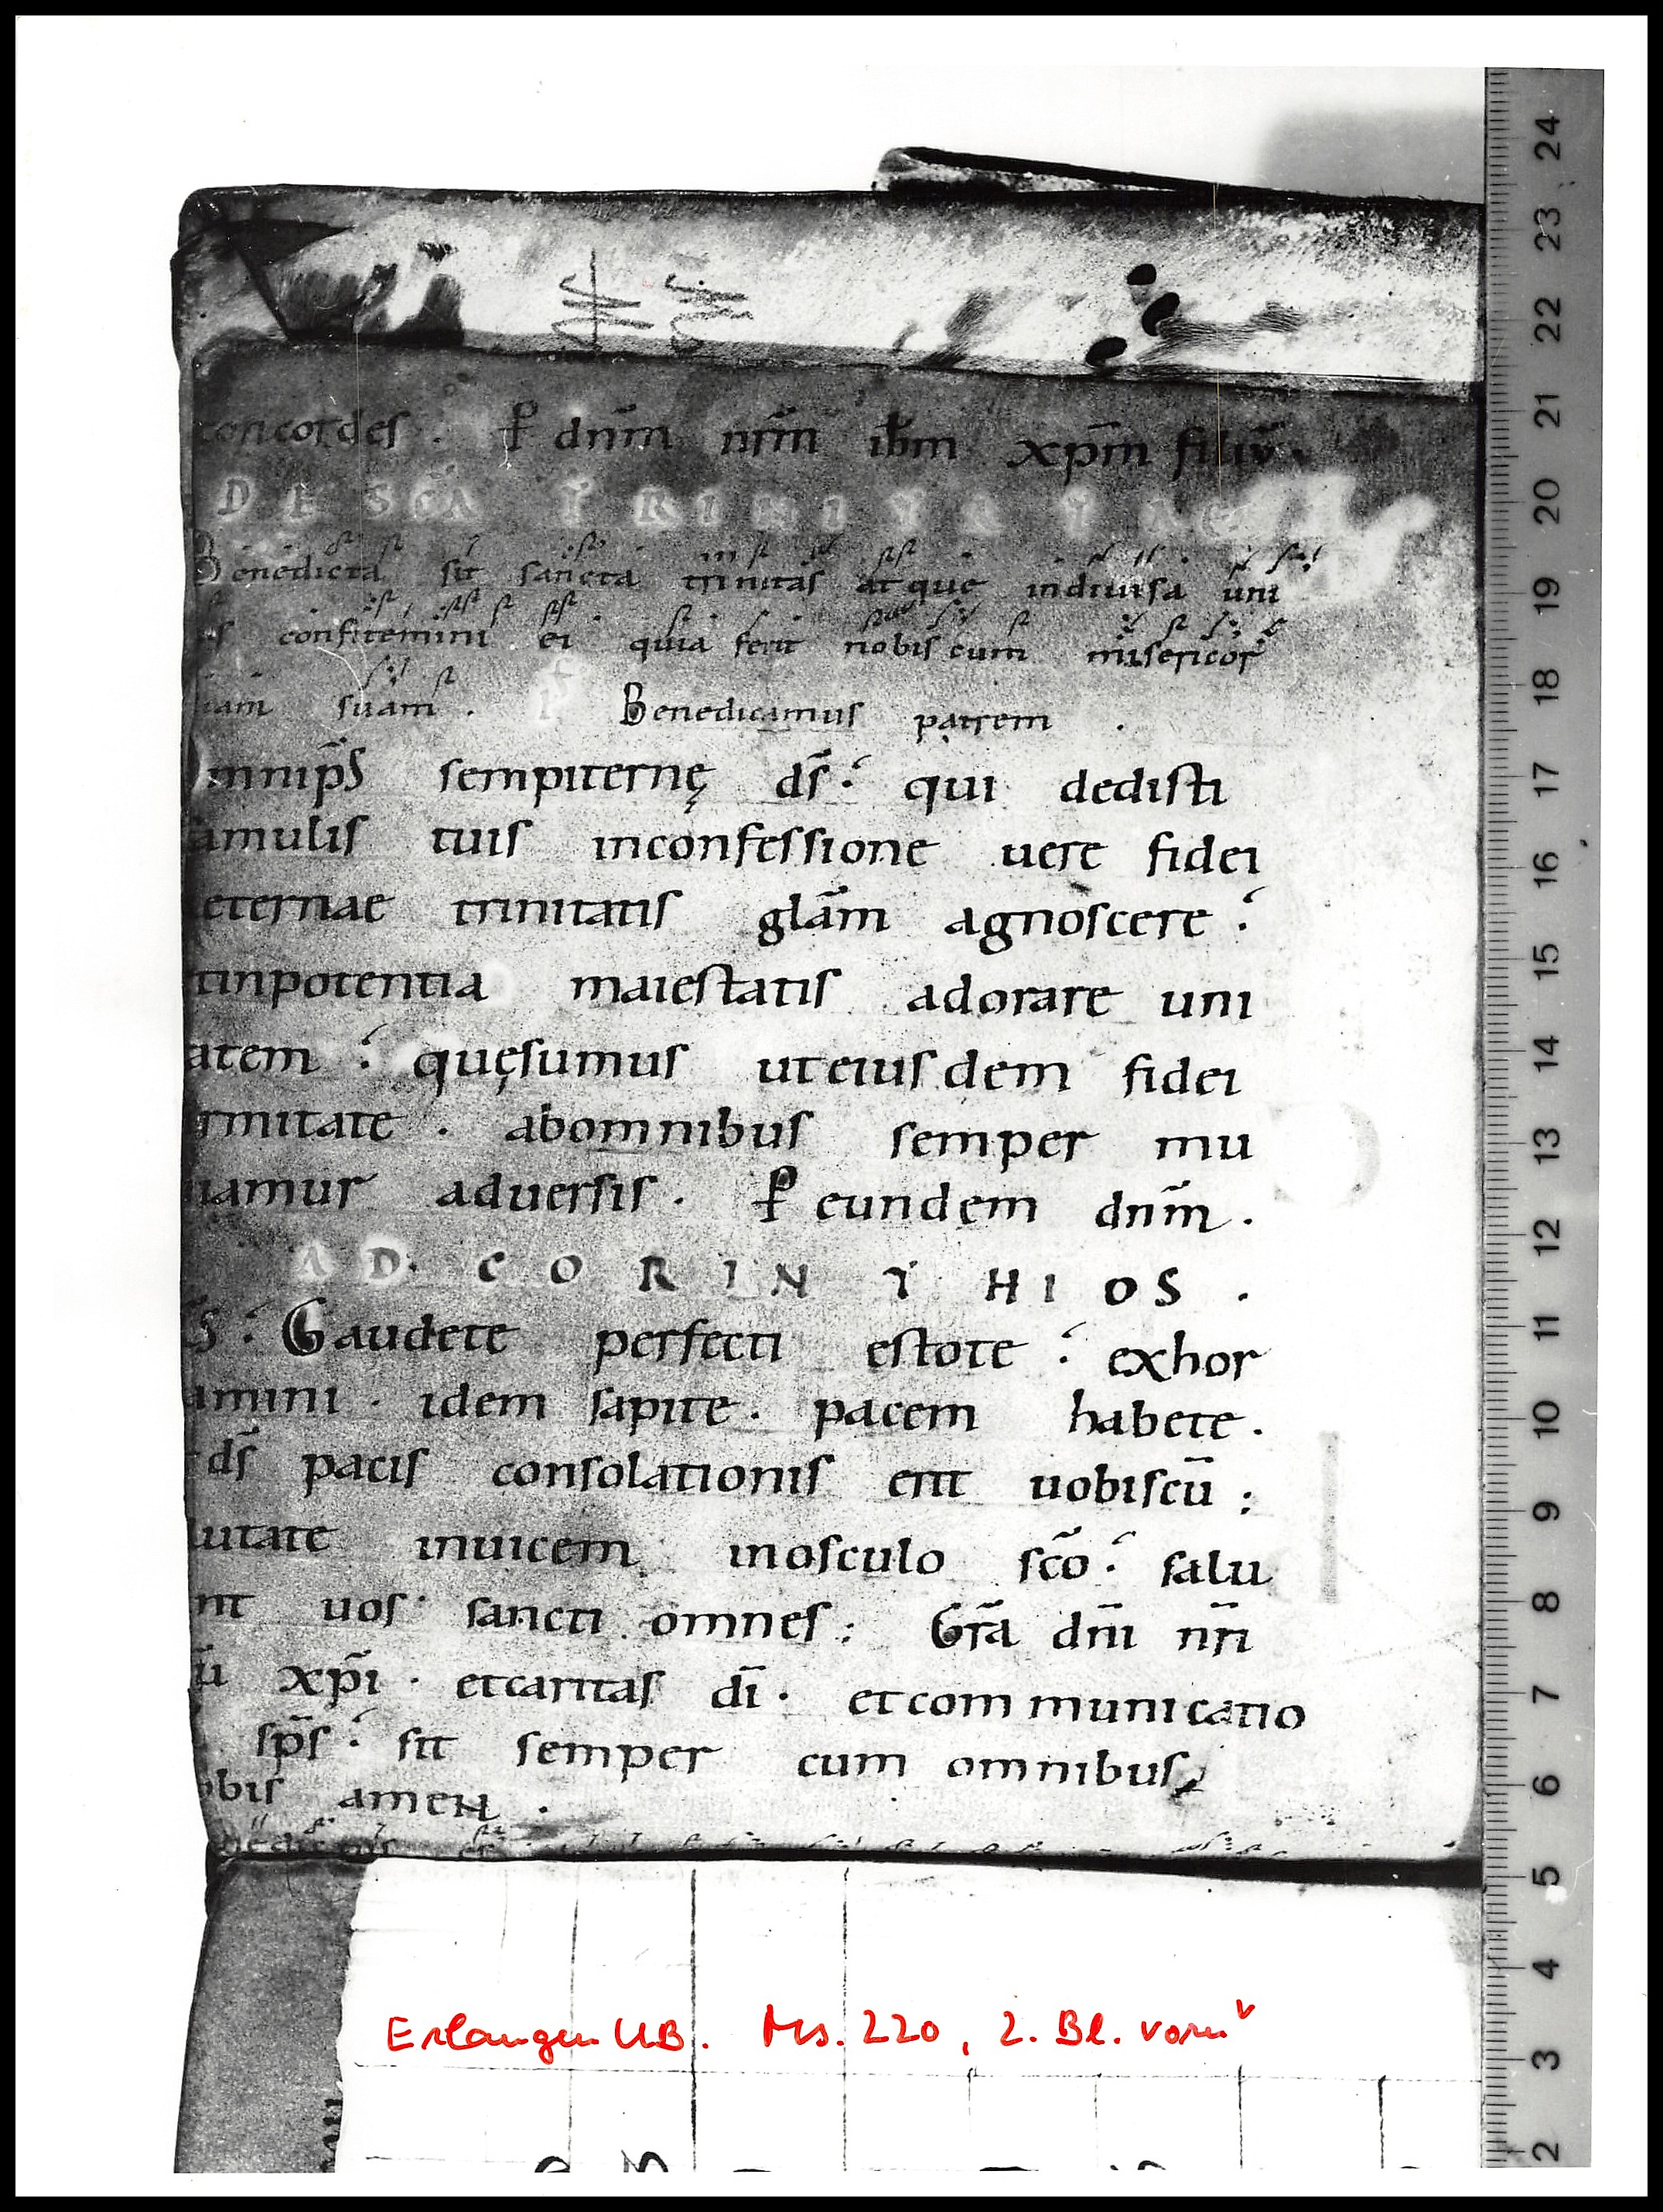 concordes. P̄ dnm̄ nrm̄ ihm̄ xpm̄ filiū.
DE SCA TRINITATE
Benedicta sit sancta trinitas atque indiuisa uni
confitemini ei quia fecit nobiscum misericor
iam suam. Ps Benedicamus patrem.
Omnip̄s sempiternę ds̄ qui dedisti
amulis tuis inconfessione uere fidei
eternae trinitatis glām agnoscere
tinpotentia maiestatis adorare uni
atem quęsumus uteiusdem fidei
rmitate. abomnibus semper mu
iamur aduersis. P̄ eundem dnm̄.
AD CORINTHIOS.
Gaudete perfecti estote exhor
amini. idem sapite. pacem habete.
ds̄ pacis consolationis erit uobiscū;
lutate inuicem inosculo scō salu
nt uos sancti omnes; Grā dnī nrī
ū xpī. etcaritas dī. etcommunicatio
sps̄ sit semper cum omnibus
obis ameN.
Erlangen UB. Ms. 220, 2. Bl. vorn v
24
23
22
21
20
19
18
17
16
15
14
13
12
11
10
9
8
7
6
5
4
3
2